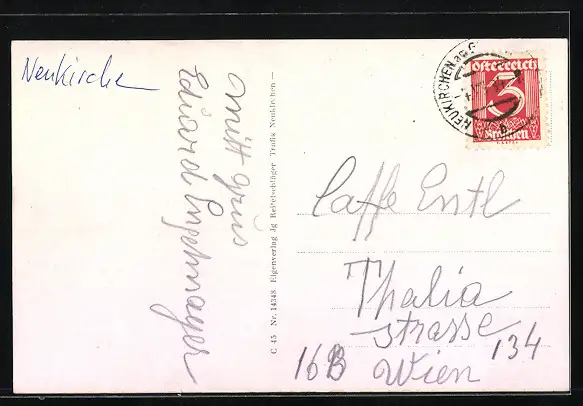 Neukirchen
Mitt grus
Eduard Engelmayer
C 45 Nr. 14348 Eigenverlag Jg Reitelschläger Trafik Neukirchen
NEUKIRCHEN
Österreich
3
Groschen
Caffe Entl
Thalia
strasse
134
16 B Wien